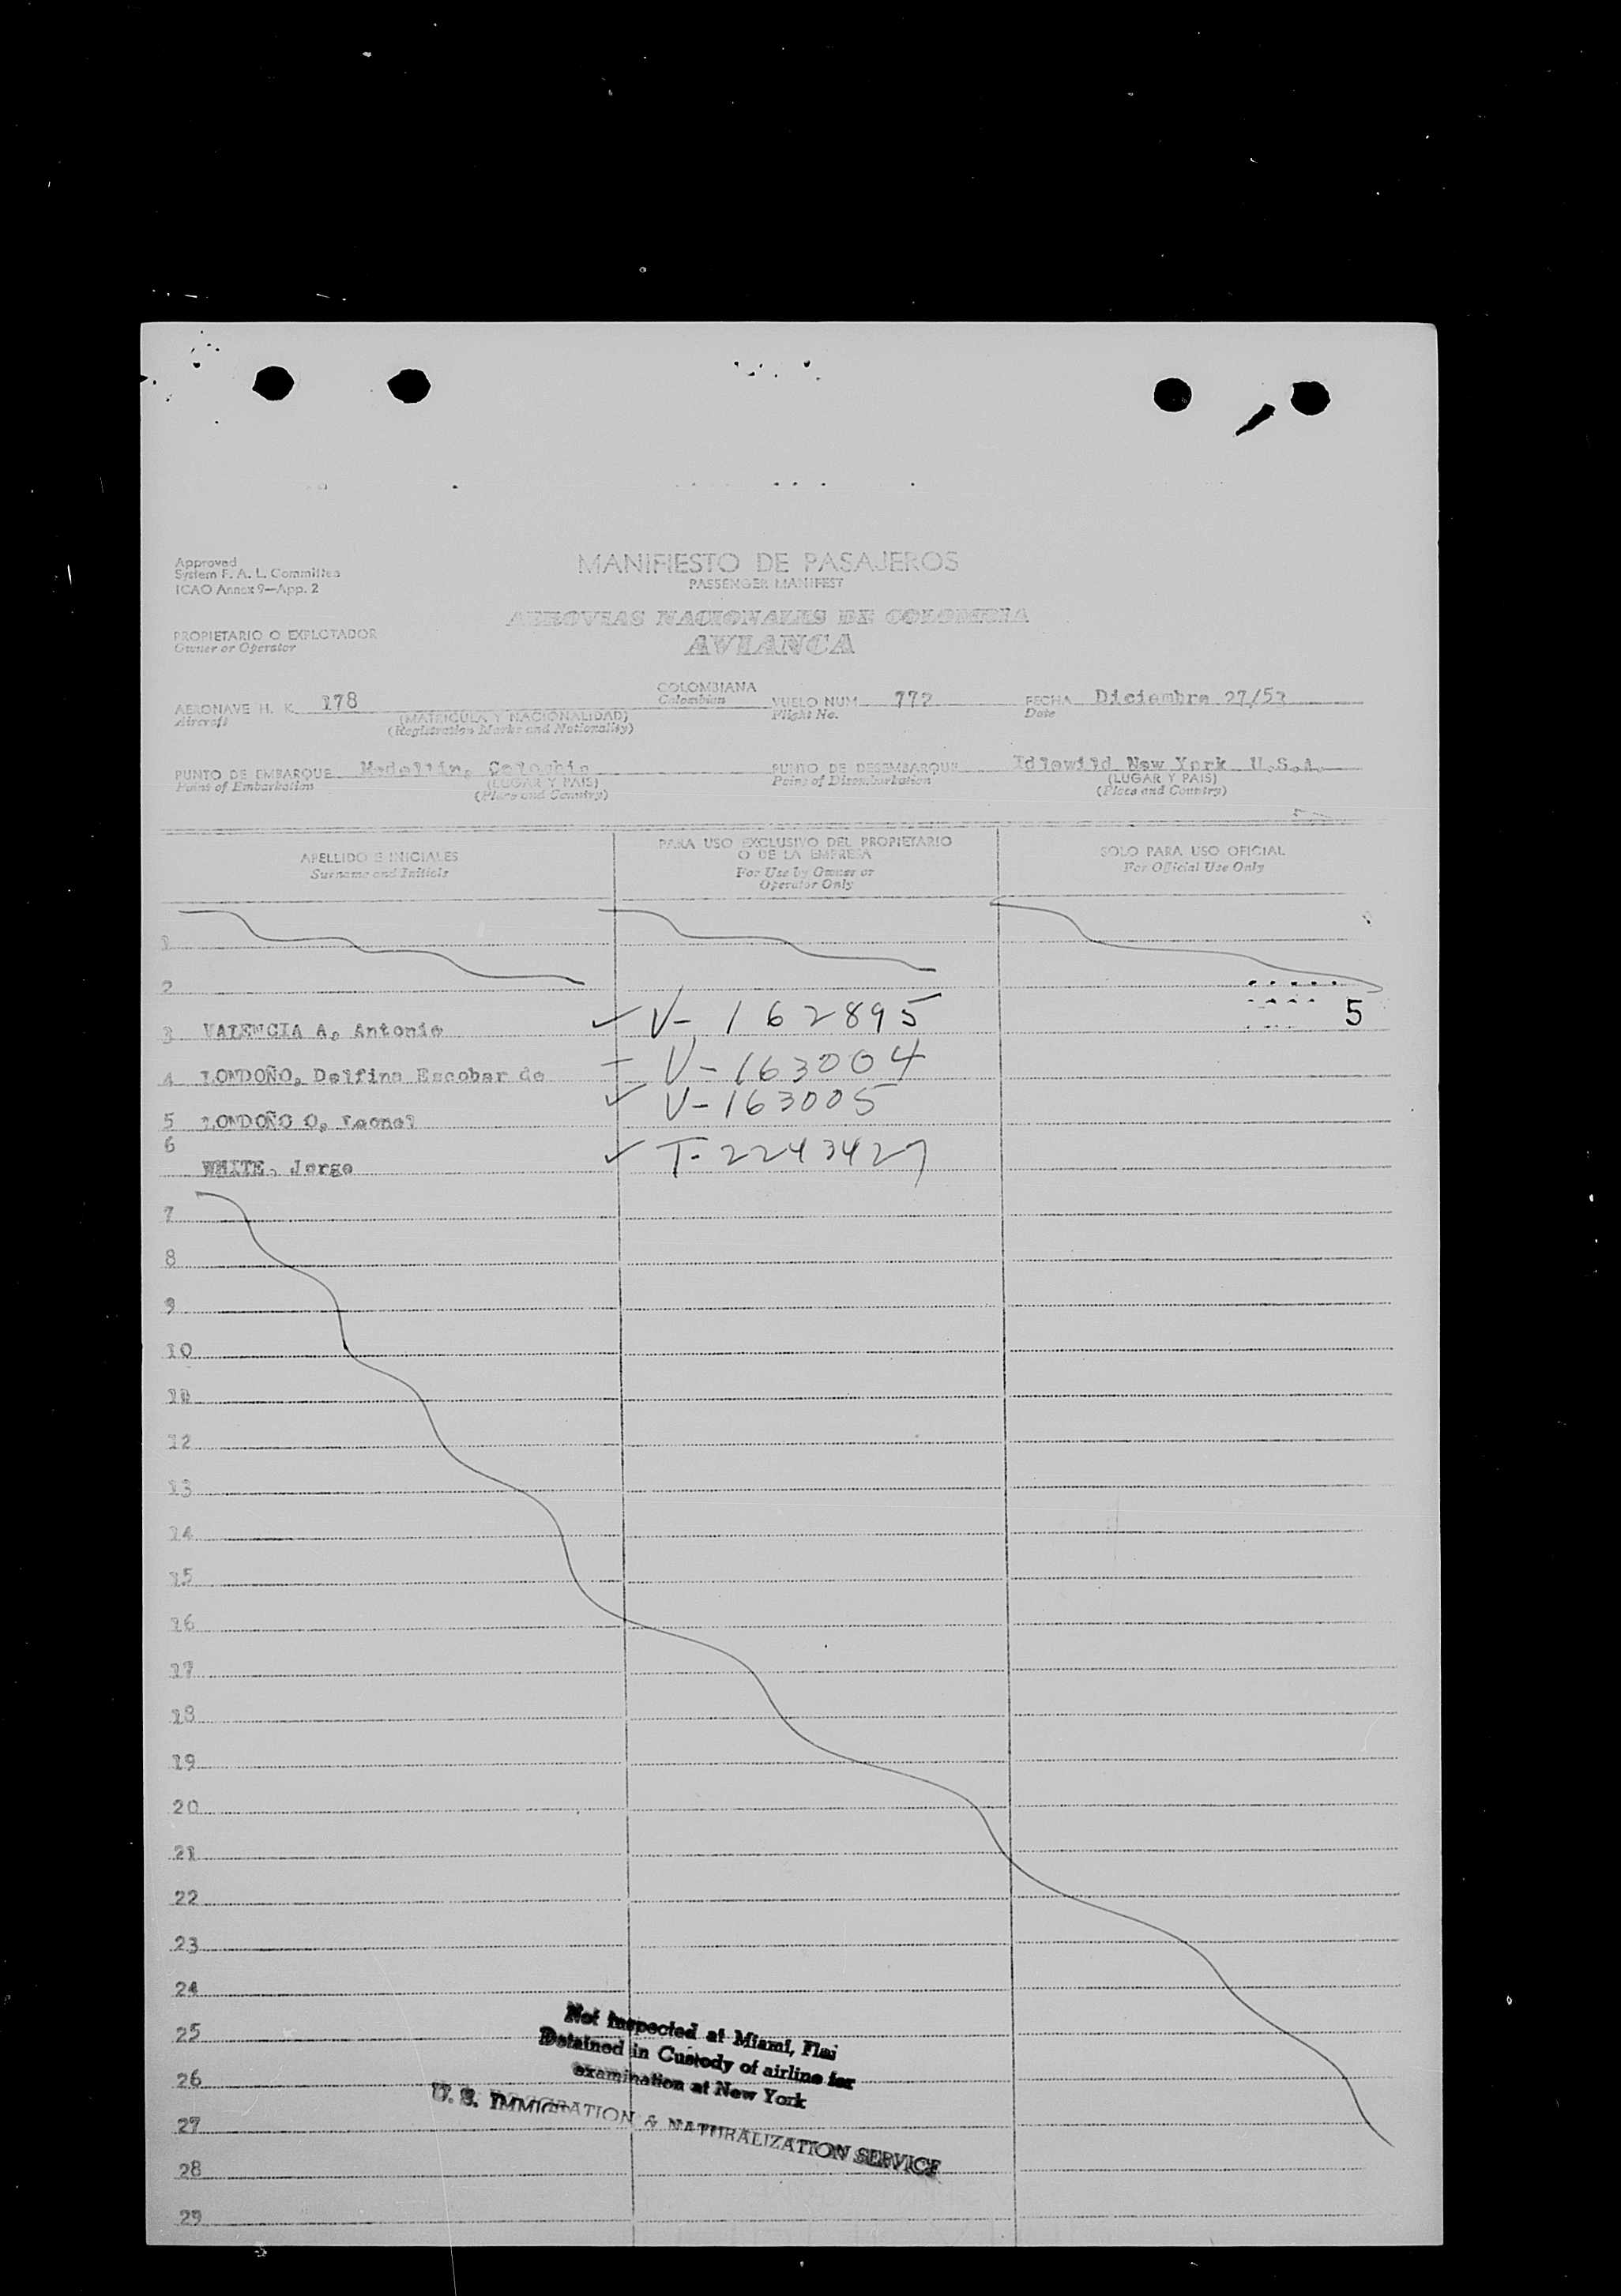 Approved
System F. A. L. Committee
ICAO Annex 9—App. 2
MANIFIESTO DE PASAJEROS
PASSENGER MANIFEST
AEROVIAS NACIONALES DE COLOMBIA
AVIANCA
PROPIETARIO O EXPLOTADOR
Owner or Operator
AERONAVE H. K. 178
Aircraft
(MATRICULA Y NACIONALIDAD)
(Registration Marks and Nationality)
COLOMBIANA
Colombian
VUELO NUM 772
Flight No.
FECHA Diciembre 27/53
Date
PUNTO DE EMBARQUE Medellin, Colombia
Point of Embarkation
(LUGAR Y PAIS)
(Place and Country)
PUNTO DE DESEMBARQUE Idlewild New York U.S.A.
Point of Disembarkation
(LUGAR Y PAIS)
(Place and Country)
APELLIDO E INICIALES
Surname and Initials
PARA USO EXCLUSIVO DEL PROPIETARIO
O DE LA EMPRESA
For Use by Owner or
Operator Only
SOLO PARA USO OFICIAL
For Official Use Only
1
2
5
3 VALENCIA A, Antonio ✓ V- 162895
4 LONDOÑO, Delfina Escobar de — V-163004
5 LONDOÑO O, Leonel ✓ V-163005
6
WHITE, Jorge ✓ T-2243427
7
8
9
10
11
12
13
14
15
16
17
18
19
20
21
22
23
24
25
26
27
28
29
Not Inspected at Miami, Fla
Detained in Custody of airline for
examination at New York
U. S. IMMIGRATION & NATURALIZATION SERVICE